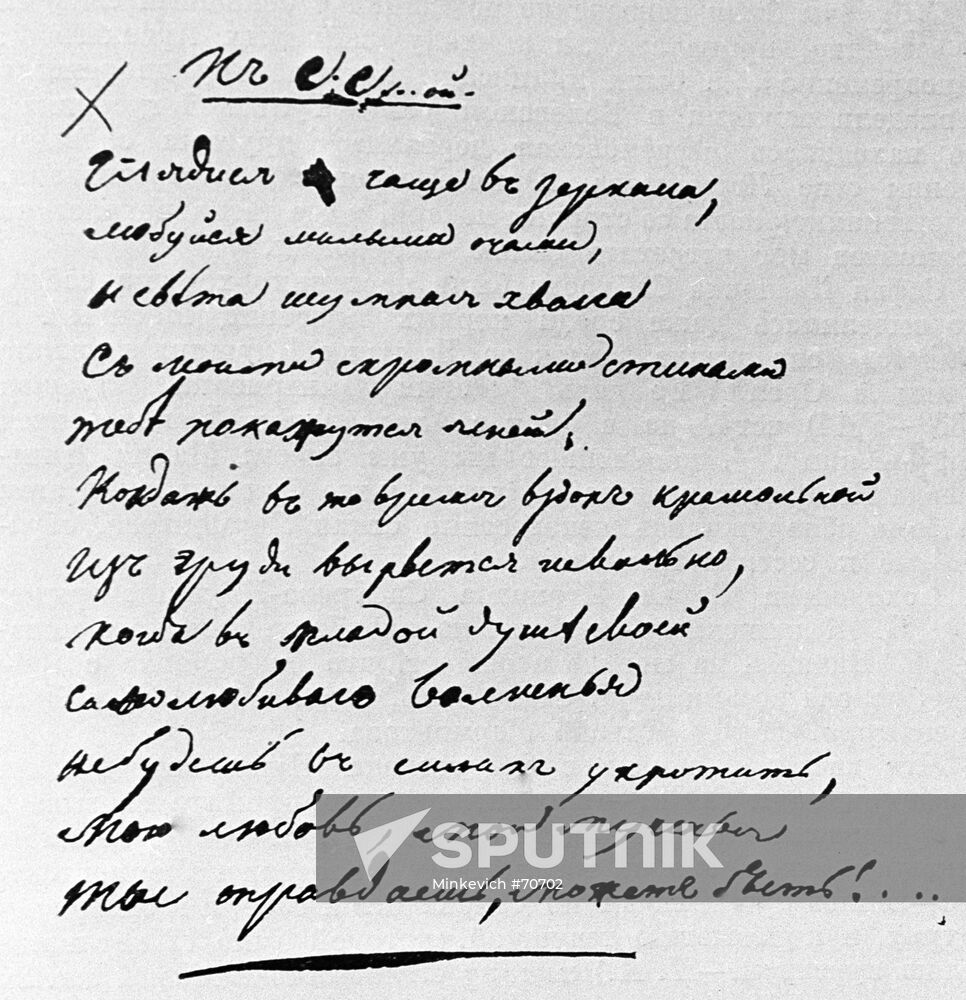 Къ С. С....ой.
Глядися чаще въ зеркала,
любуйся милыми очами,
и свѣта шумная хвала
Съ моими скромными стихами
тебѣ покажутся ясней!..
Когдажь въ то время вздохъ крамольной
Изъ груди вырвется невольно,
когда въ младой душѣ своей
самолюбиваго волненья
небудешь въ силахъ укротить,
Мою любовь, мои мученья
ты оправдаешь, можетъ быть!....
SPUTNIK
Minkevich #70702